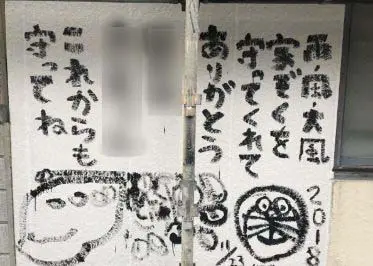 雨風・大風
家ぞくを
守ってくれて
ありがとう
これからも
守ってね
2018
23